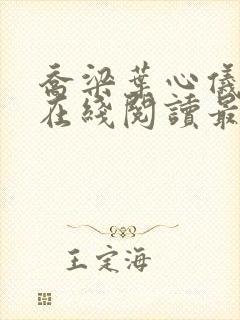 喬梁葉心儀
在綫閱讀最
王定海